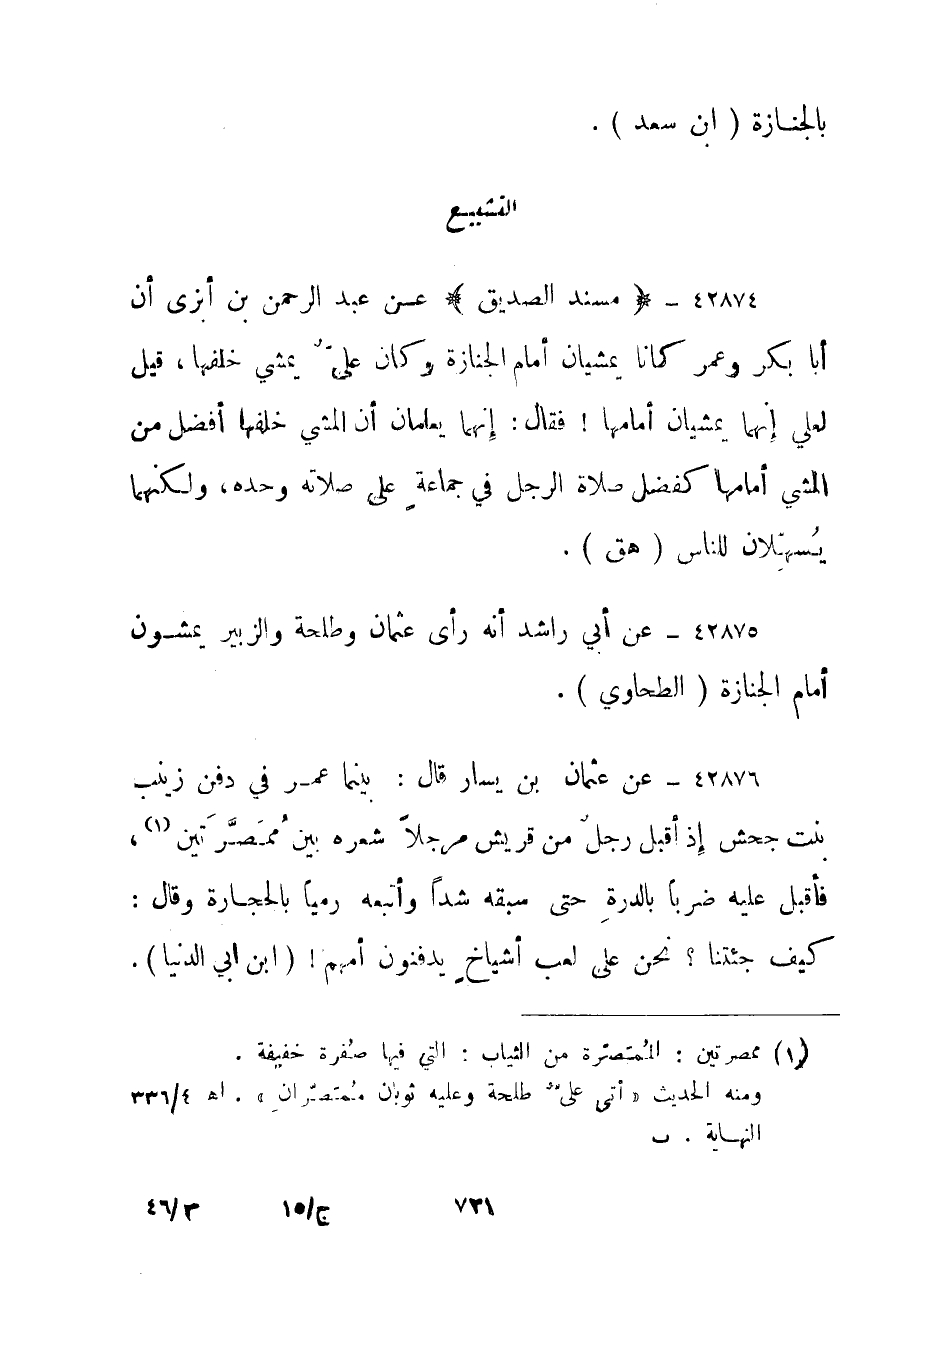 بالجنازة ( ابن سعد ) .
التشييع
٤٢٨٧٤ - ﴿ مسند الصديق ﴾ عن عبد الرحمن بن أبزى أن
أبا بكر وعمر كانا يمشيان أمام الجنازة وكان عليٌّ يمشي خلفها ، قيل
لعلي إنهما يمشيان أمامها ! فقال : إنهما يعلمان أن المشي خلفها أفضل من
المشي أمامها كفضل صلاة الرجل في جماعةٍ على صلاته وحده ، ولكنهما
يُسهِّلان للناس ( هق ) .
٤٢٨٧٥ - عن أبي راشد أنه رأى عثمان وطلحة والزبير يمشون
أمام الجنازة ( الطحاوي ) .
٤٢٨٧٦ - عن عثمان بن يسار قال : بينما عمر في دفن زينب
بنت جحش إذ أقبل رجلٌ من قريش مرجلاً شعره بين مُمَصَّرَتين (١) ،
فأقبل عليه ضرباً بالدرةِ حتى سبقه شداً وأتبعه رمياً بالحجارة وقال :
كيف جئتنا ؟ نحن على لعب أشياخٍ يدفنون أمهم ! ( ابن ابي الدنيا ) .
(١) ممصرتين : المُمَصَّرة من الثياب : التي فيها صُفرة خفيفة .
ومنه الحديث « أتى عليٌّ طلحة وعليه ثوبان مُمَصَّران » . اه ٣٣٦/٤
النهاية . ب
٧٢١ ج/١٥ م/٤٦